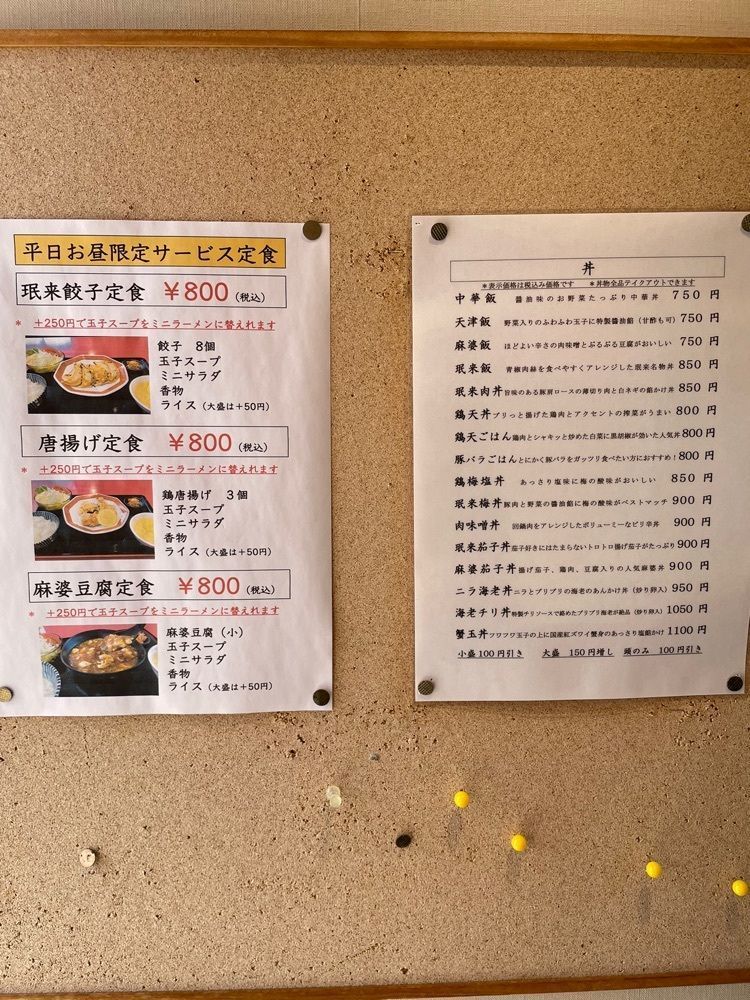 平日お昼限定サービス定食
珉来餃子定食 ¥800（税込）
* +250円で玉子スープをミニラーメンに替えれます
餃子 8個
玉子スープ
ミニサラダ
香物
ライス（大盛は+50円）
唐揚げ定食 ¥800（税込）
* +250円で玉子スープをミニラーメンに替えれます
鶏唐揚げ 3個
玉子スープ
ミニサラダ
香物
ライス（大盛は+50円）
麻婆豆腐定食 ¥800（税込）
* +250円で玉子スープをミニラーメンに替えれます
麻婆豆腐（小）
玉子スープ
ミニサラダ
香物
ライス（大盛は+50円）
丼
*表示価格は税込み価格です *丼物全品テイクアウトできます
中華飯 醤油味のお野菜たっぷり中華丼 750円
天津飯 野菜入りのふわふわ玉子に特製醤油餡（甘酢も可）750円
麻婆飯 ほどよい辛さの肉味噌とぷるぷる豆腐がおいしい 750円
珉来飯 青椒肉絲を食べやすくアレンジした珉来名物丼 850円
珉来肉丼 旨味のある豚肩ロースの薄切り肉と白ネギの餡かけ丼 850円
鶏天丼 プリっと揚げた鶏肉とアクセントの搾菜がうまい 800円
鶏天ごはん 鶏肉とシャキッと炒めた白菜に黒胡椒が効いた人気丼 800円
豚バラごはん とにかく豚バラをガッツリ食べたい方におすすめ！800円
鶏梅塩丼 あっさり塩味に梅の酸味がおいしい 850円
珉来梅丼 豚肉と野菜の醤油餡に梅の酸味がベストマッチ 900円
肉味噌丼 回鍋肉をアレンジしたボリューミーなピリ辛丼 900円
珉来茄子丼 茄子好きにはたまらないトロトロ揚げ茄子がたっぷり 900円
麻婆茄子丼 揚げ茄子、鶏肉、豆腐入りの人気麻婆丼 900円
ニラ海老丼 ニラとプリプリの海老のあんかけ丼（炒り卵入）950円
海老チリ丼 特製チリソースで絡めたプリプリ海老が絶品（炒り卵入）1050円
蟹玉丼 フワフワ玉子の上に国産紅ズワイ蟹身のあっさり塩餡かけ 1100円
小盛100円引き 大盛 150円増し 頭のみ 100円引き